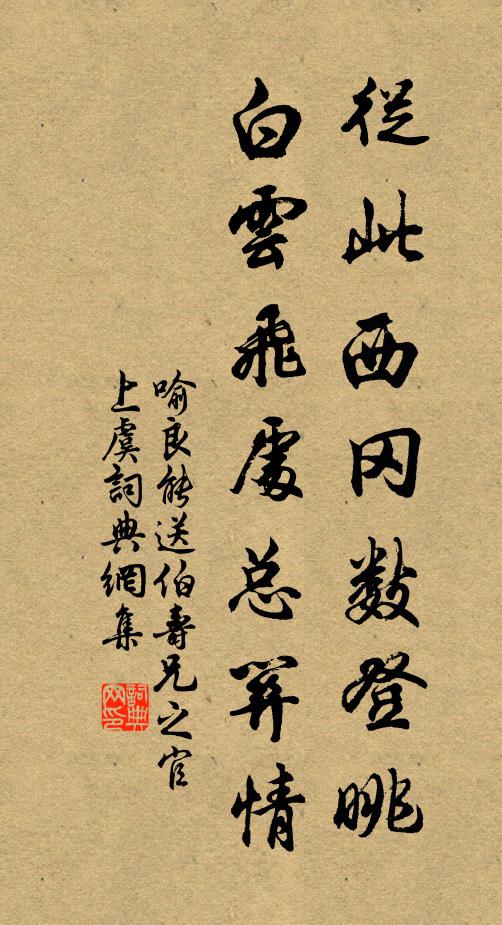 從此西冈数登眺
白雲飛處总關情
喻良能送伯壽兄之官
上虞詞典網集
詞典
网印